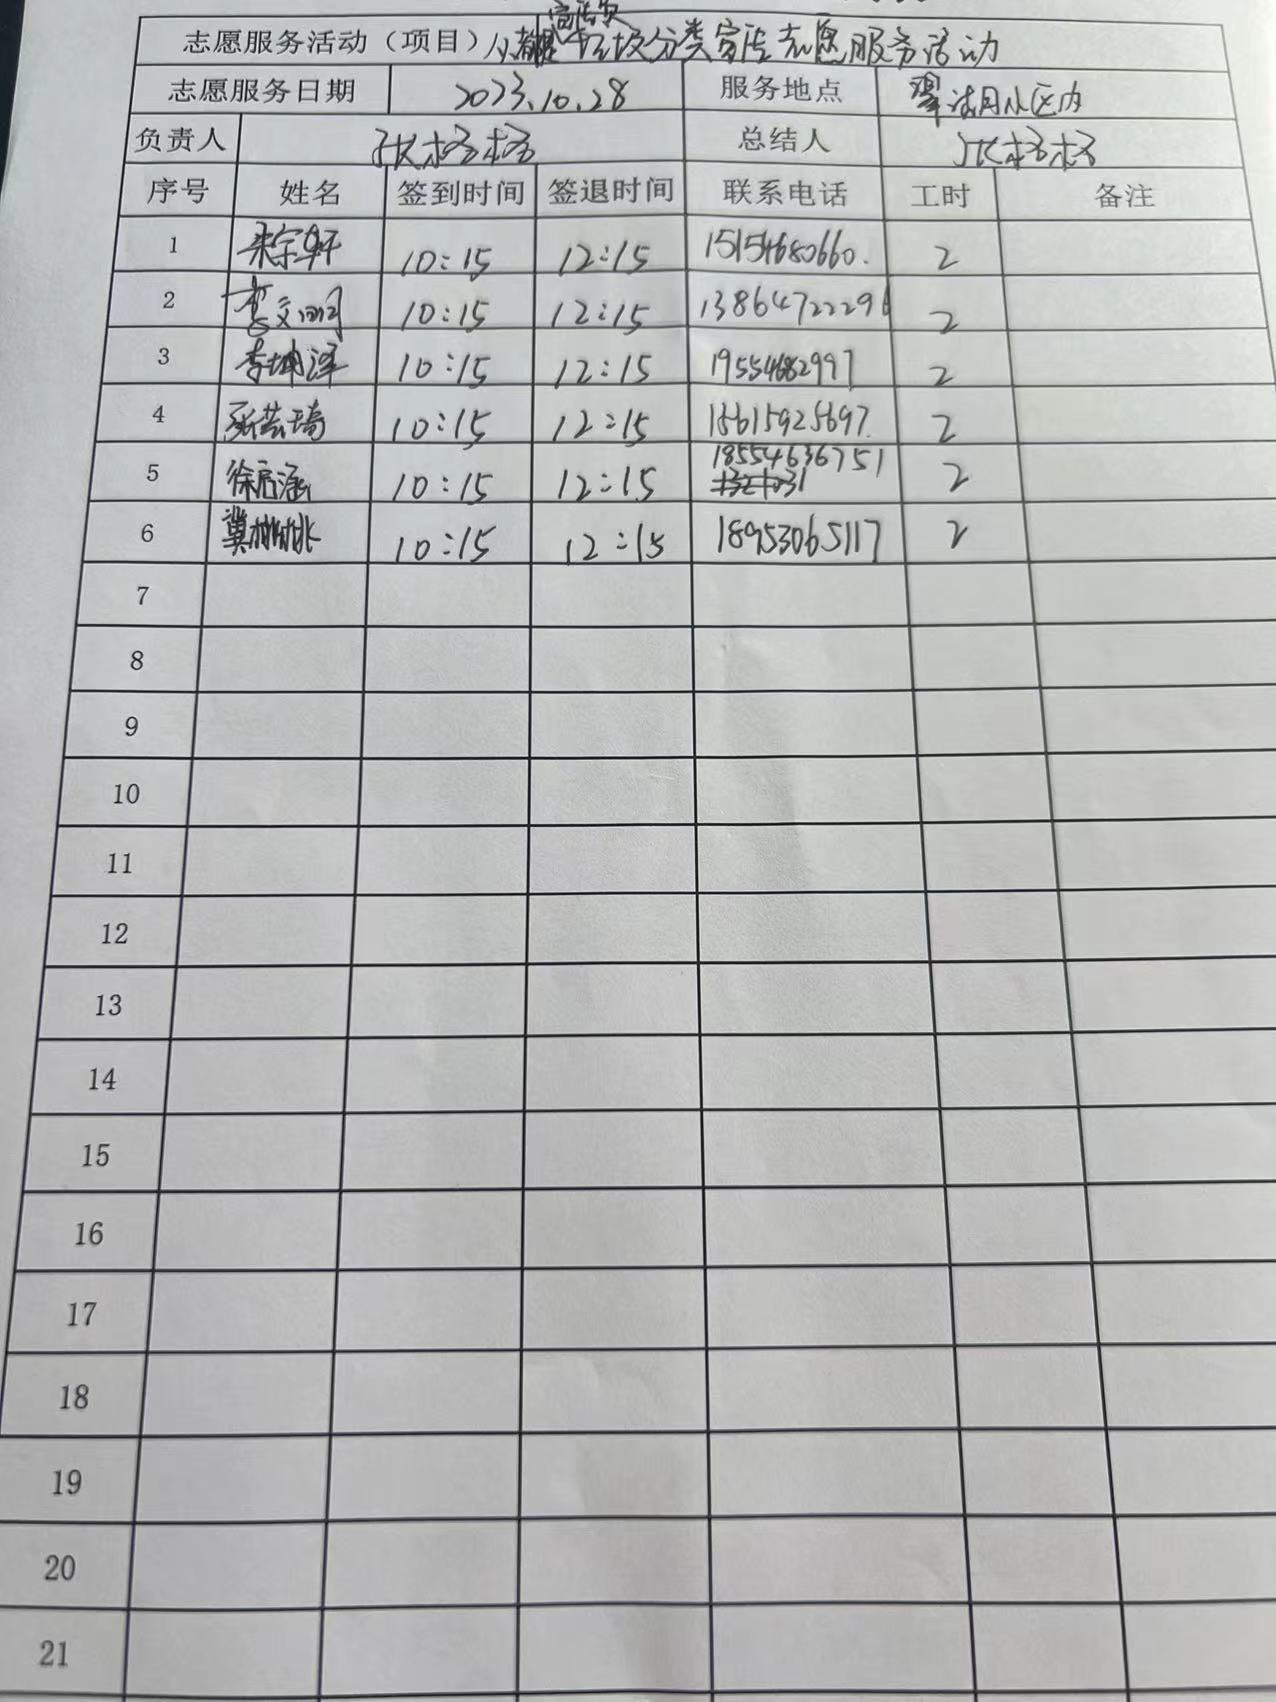 志愿服务活动（项目） 垃圾分类宣传志愿服务活动
志愿服务日期 2023.10.28 服务地点 小区内
负责人 张格格 总结人 张格格
序号 姓名 签到时间 签退时间 联系电话 工时 备注
1 宋宇轩 10:15 12:15 15154680660. 2
2 李文润 10:15 12:15 13864722296 2
3 李坤泽 10:15 12:15 19554682997 2
4 张芸琦 10:15 12:15 15615925697. 2
5 徐启涵 10:15 12:15 18554636751 2
6 冀姚姚 10:15 12:15 18953065117 2
7
8
9
10
11
12
13
14
15
16
17
18
19
20
21